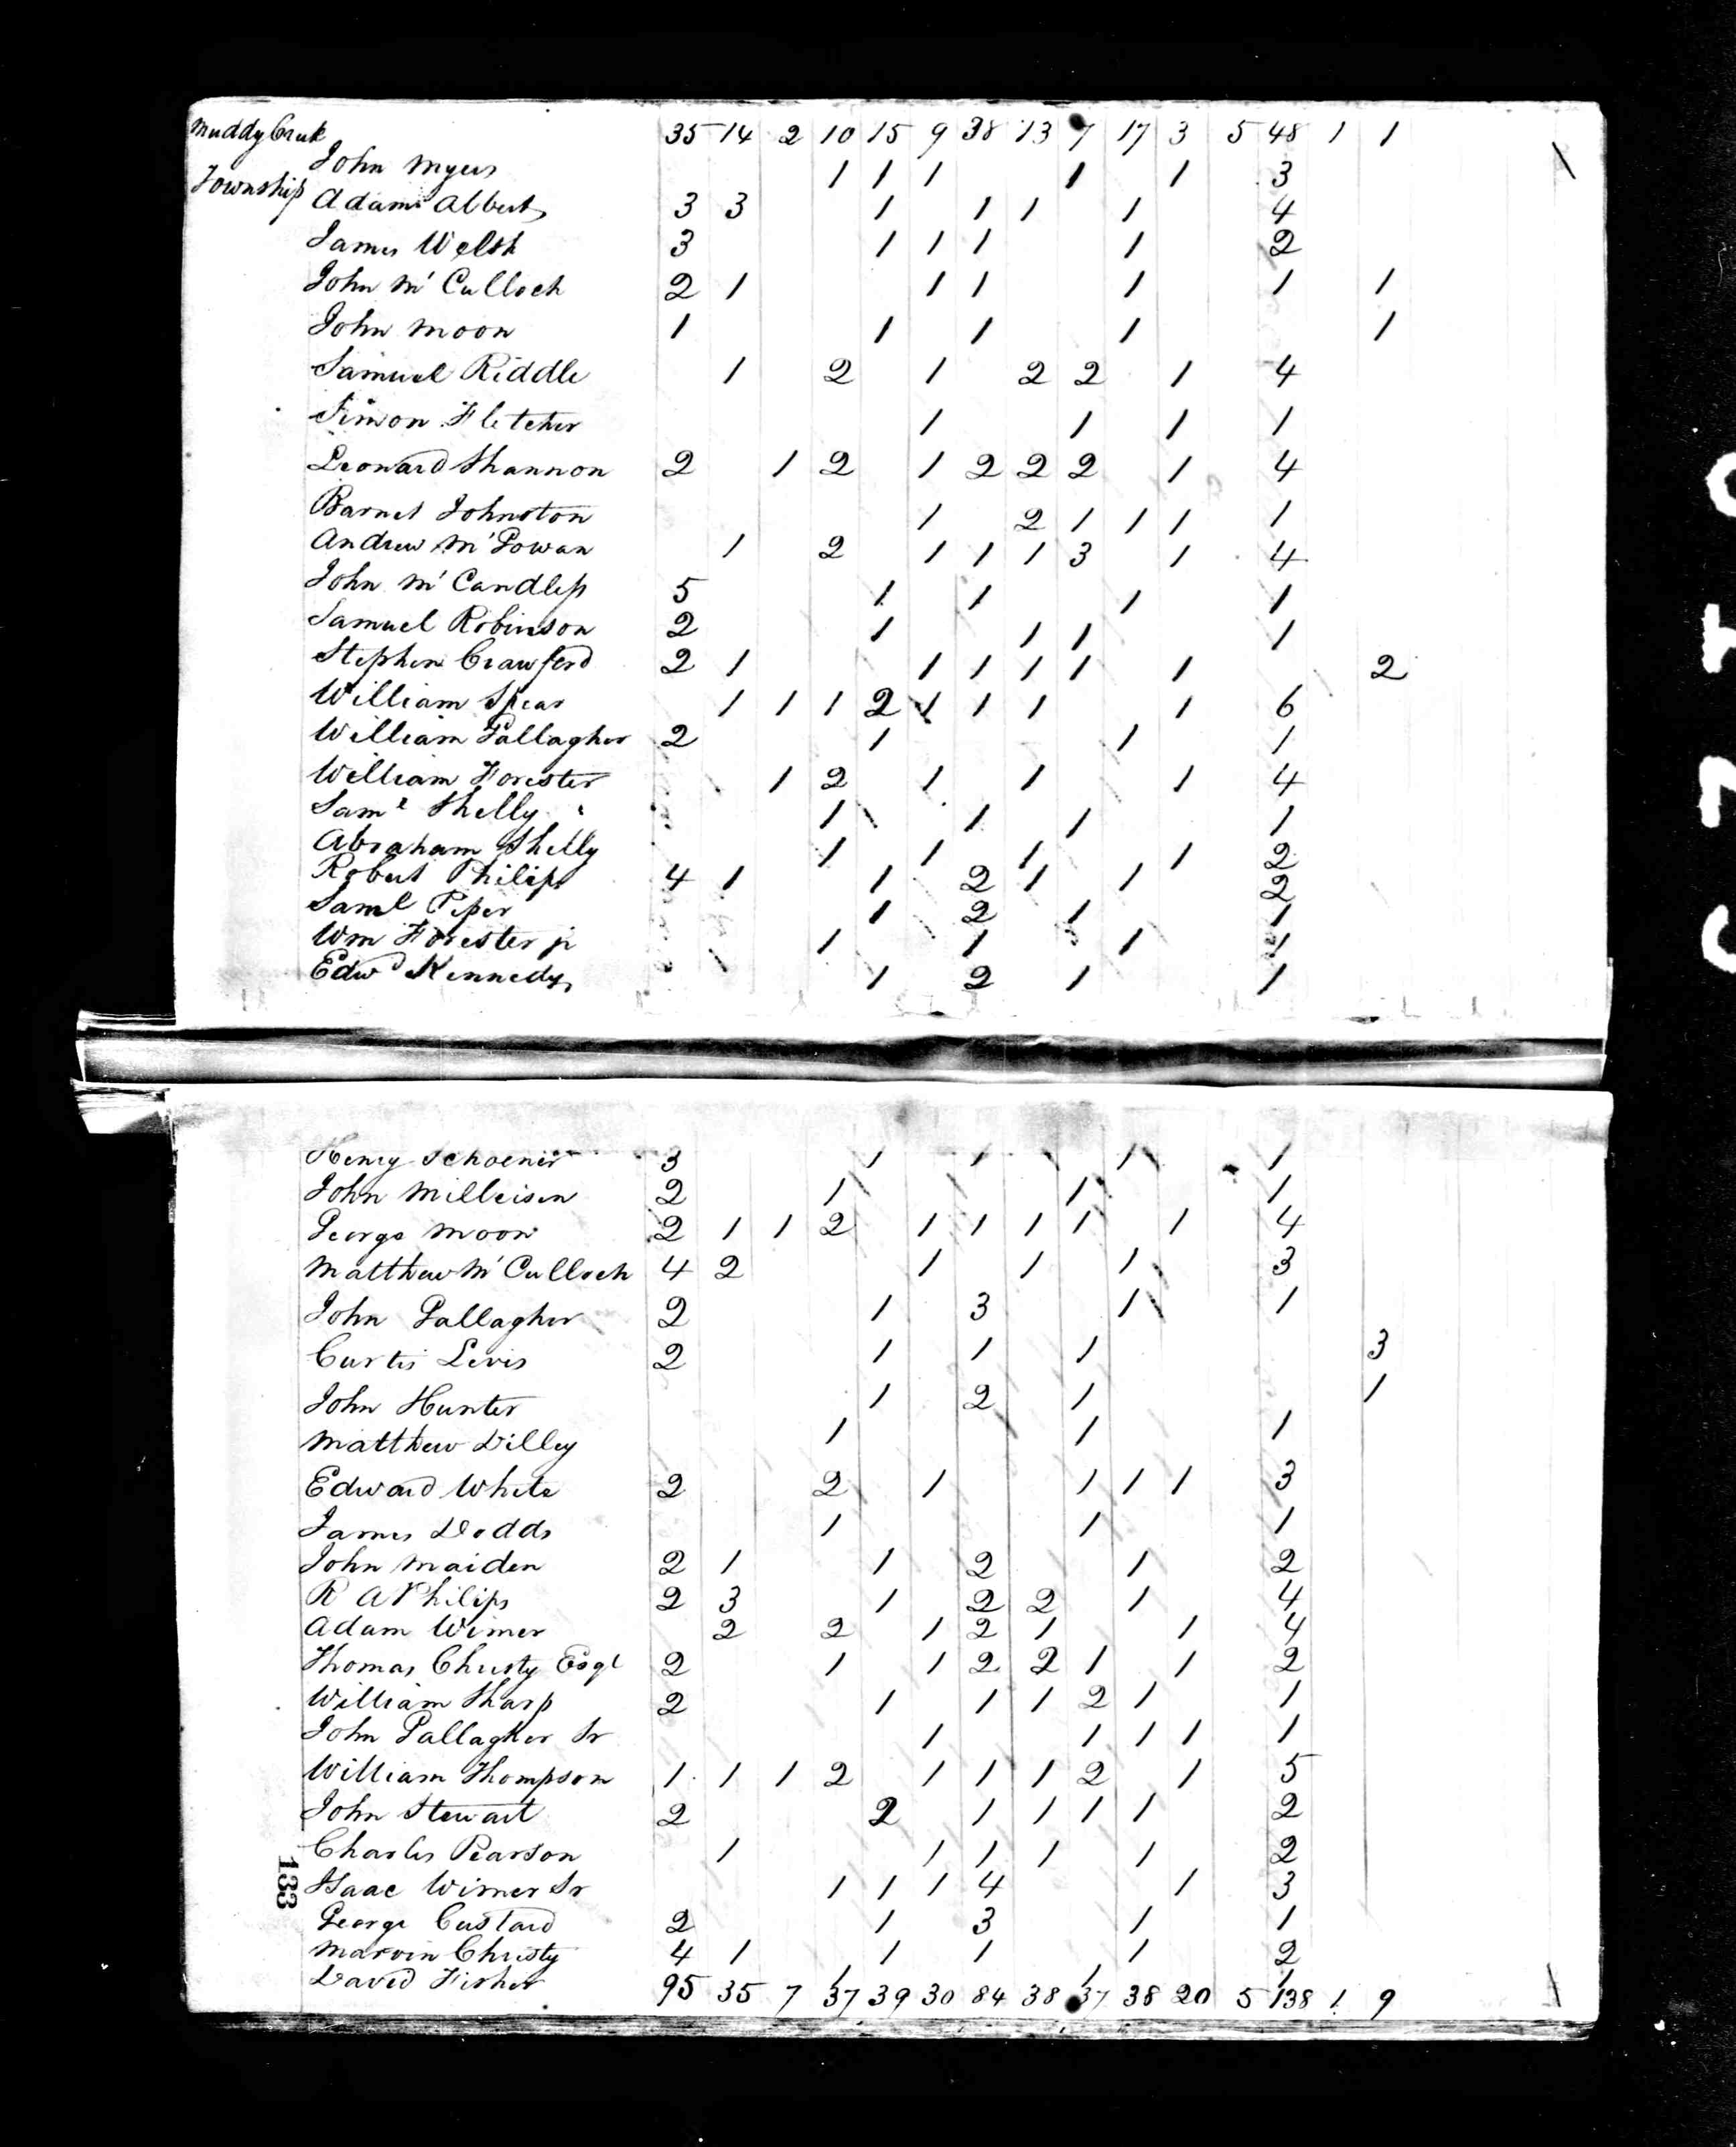 Muddy Creek 35 14 2 10 15 9 38 13 7 17 3 5 48 1 1
John Myers 1 1 1 1 1 3
Township Adam Albert 3 3 1 1 1 1 4
James Welsh 3 1 1 1 1 2
John McCulloch 2 1 1 1 1 1 1
John Moon 1 1 1 1 1
Samuel Riddle 1 2 1 2 2 1 4
Simon Fletcher 1 1 1 1
Leonard Shannon 2 1 2 1 2 2 2 1 4
Barnet Johnston 1 2 1 1 1 1
Andrew McGowan 1 2 1 1 1 3 1 4
John McCandless 5 1 1 1 1
Samuel Robinson 2 1 1 1 1
Stephen Crawford 2 1 1 1 1 1 1 2
William Spear 1 1 1 2 1 1 1 1 6
William Gallagher 2 1 1 1
William Forester 1 2 1 1 1 4
Saml Shelly 1 1 1 1
Abraham Shelly 1 1 1 1 2
Robert Philips 4 1 1 2 1 1 2
Saml Piper 1 2 1 1
Wm Forester jr 1 1 1 1
Edwd Kennedy 1 2 1 1
Henry Schoener 3 1 1 1 1
John Milleisen 2 1 1 1
George Moon 2 1 1 2 1 1 1 1 1 4
Matthew McCulloch 4 2 1 1 1 3
John Gallagher 2 1 3 1 1
Curtis Levis 2 1 1 1 3
John Hunter 1 2 1 1
Matthew Dilley 1 1 1
Edward White 2 2 1 1 1 1 3
James Dodds 1 1 1
John Maiden 2 1 1 2 1 2
R A Philips 2 3 1 2 2 1 4
Adam Wimer 2 2 1 2 1 1 4
Thomas Christy Esqr 2 1 1 2 2 1 1 2
William Sharp 2 1 1 1 2 1 1
John Gallagher Sr 1 1 1 1 1
William Thompson 1 1 1 2 1 1 1 2 1 5
John Stewart 2 2 1 1 1 1 2
Charles Pearson 1 1 1 1 1 2
Isaac Wimer Sr 1 1 1 4 1 3
George Custard 2 1 3 1 1
Marvin Christy 4 1 1 1 1 2
David Fisher 1 1 1
95 35 7 37 39 30 84 38 37 38 20 5 138 1 9
133